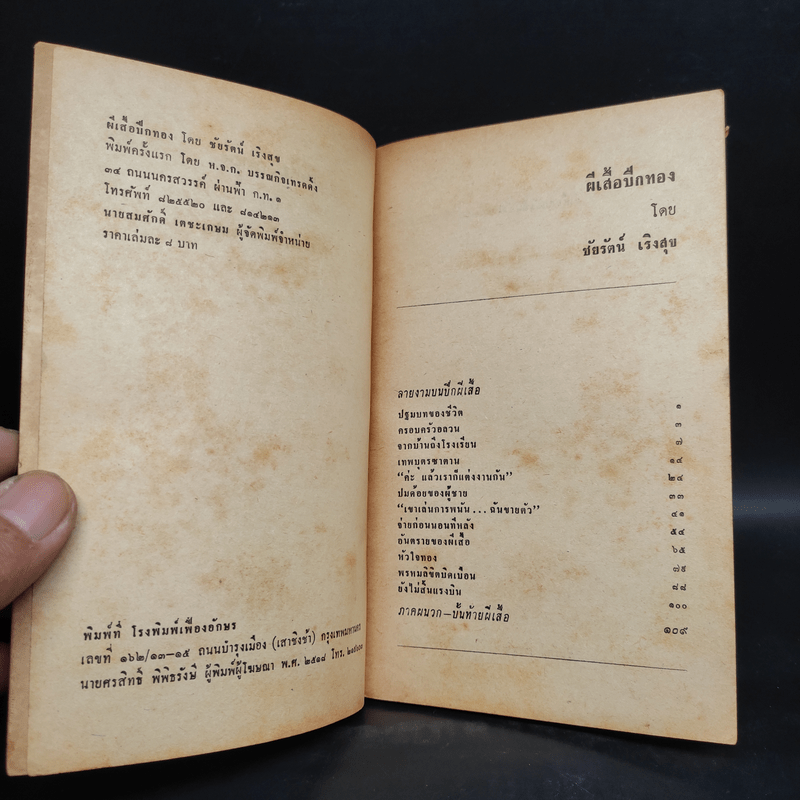 ผีเสื้อปีกทอง โดย ชัยรัตน์ เริงสุข
พิมพ์ครั้งแรก โดย ห.จ.ก. บรรณกิจเทรดดิ้ง
๓๔ ถนนนครสวรรค์ ผ่านฟ้า ก.ท. ๑
โทรศัพท์ ๘๒๕๕๒๐ และ ๘๑๔๒๑๓
นายสมศักดิ์ เตชะเกษม ผู้จัดพิมพ์จำหน่าย
ราคาเล่มละ ๘ บาท
พิมพ์ที่ โรงพิมพ์เฟื่องอักษร
เลขที่ ๑๖๒/๑๓-๑๕ ถนนบำรุงเมือง (เสาชิงช้า) กรุงเทพมหานคร
นายศรสิทธิ์ พิพิธรังษี ผู้พิมพ์ผู้โฆษณา พ.ศ. ๒๕๑๘ โทร.
ผีเสื้อปีกทอง
โดย
ชัยรัตน์ เริงสุข
ลายงามบนปีกผีเสื้อ
ปฐมบทของชีวิต ๑
ครอบครัวอลวน ๓
จากบ้านถึงโรงเรียน ๗
เทพบุตรซาตาน ๑๔
“ค่ะ แล้วเราก็แต่งงานกัน” ๒๔
ปมด้อยของผู้ชาย ๓๓
“เขาเล่นการพนัน...ฉันขายตัว” ๔๑
จ่ายก่อนนอนทีหลัง ๕๔
อันตรายของผีเสื้อ ๖๕
หัวใจทอง ๗๙
พรหมลิขิตบิดเบือน ๘๘
ยังไม่สิ้นแรงบิน ๑๐๐
ภาคผนวก-บั้นท้ายผีเสื้อ ๑๐๙